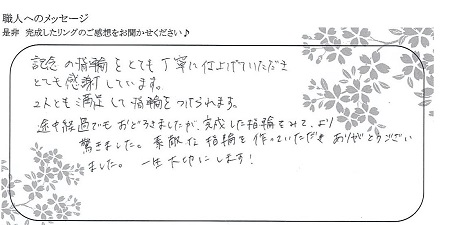 職人へのメッセージ
是非 完成したリングのご感想をお聞かせください♪
記念の指輪をとても丁寧に仕上げていただき
とても感謝しています。
2人とも満足して指輪をつけられます。
途中経過でもおどろきましたが、完成した指輪をみて、より
驚きました。素敵な指輪を作っていただき ありがとうござい
ました。一生大切にします!